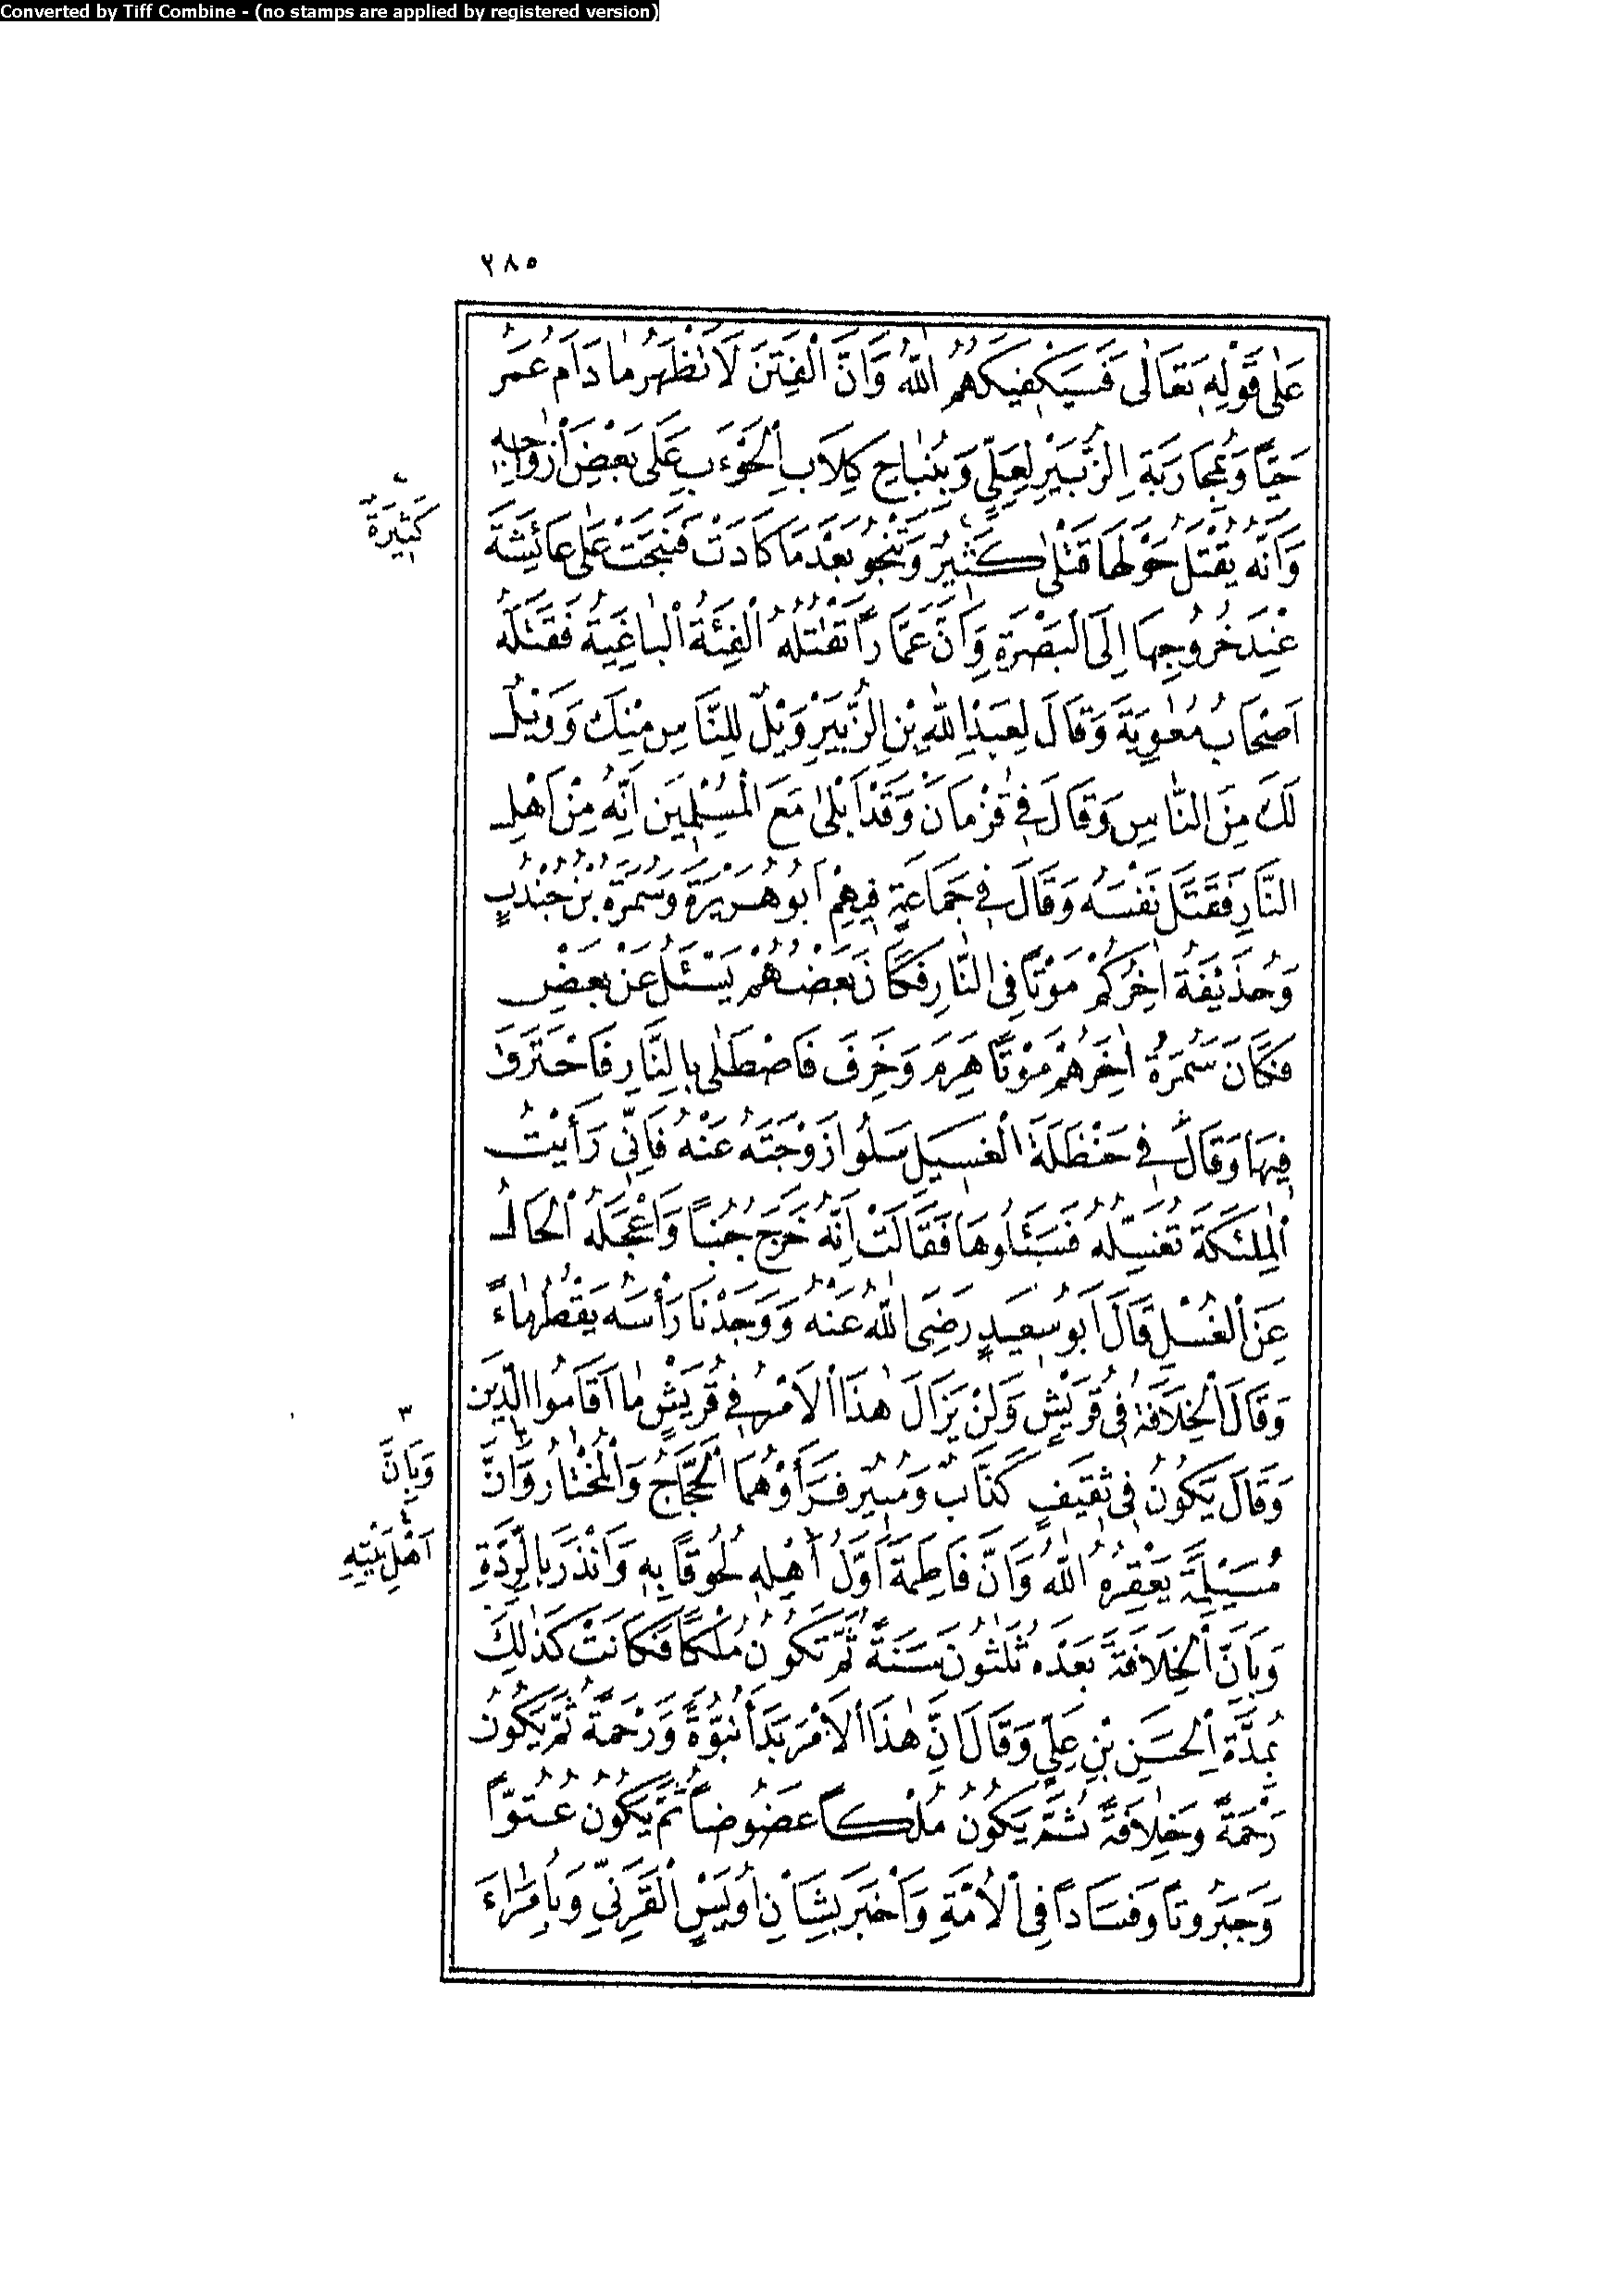 Converted by Tiff Combine - (no stamps are applied by registered version)
٢٨٥
عَلٰى قَوْلِهِ تَعَالٰى فَسَيَكْفِيكَهُمُ اللّٰهُ وَاَنَّ الْفِتَنَ لَا تَظْهَرُ مٰا دَامَ عُمَرُ
حَيًّا وَبِمُحَارَبَةِ الزُّبَيْرِ لِعَلِيٍّ وَبِنُبٰاحِ كِلَابِ الْحَوْءَبِ عَلَى بَعْضِ اَزْوٰاجِهِ
وَاَنَّهُ يُقْتَلُ حَوْلَهَا قَتْلٰى كَثِيرٌ وَتَنْجُو بَعْدَ مَا كَادَتْ فَنَبَحَتْ عَلٰى عَائِشَةَ
عِنْدَ خُرُوجِهَا اِلَى الْبَصْرَةِ وَاَنَّ عَمَّارًا تَقْتُلُهُ الْفِئَةُ الْبٰاغِيَةُ فَقَتَلَهُ
اَصْحَابُ مُعٰوِيَةَ وَقَالَ لِعَبْدِ اللّٰهِ بْنِ الزُّبَيْرِ وَيْلٌ لِلنَّاسِ مِنْكَ وَوَيْلٌ
لَكَ مِنَ النّٰاسِ وَقَالَ فِي قُزْمَانَ وَقَدْ اَبْلٰى مَعَ الْمُسْلِمِينَ اِنَّهُ مِنْ اَهْلِ
النَّارِ فَقَتَلَ نَفْسَهُ وَقَالَ فِي جَمَاعَةٍ فِيهِمْ اَبُو هُرَيْرَةَ وَسَمُرَةُ بْنُ جُنْدُبٍ
وَحُذَيْفَةُ اٰخِرُكُمْ مَوْتًا فِي النّٰارِ فَكَانَ بَعْضُهُمْ يَسْئَلُ عَنْ بَعْضٍ
فَكَانَ سَمُرَةُ اٰخِرَهُمْ مَوْتًا هَرِمَ وَخَرِفَ فَاصْطَلٰى بِالنَّارِ فَاحْتَرَقَ
فِيهَا وَقَالَ فِي حَنْظَلَةَ الْغَسِيلِ سَلُوا زَوْجَتَهُ عَنْهُ فَاِنِّي رَأَيْتُ
الْمَلٰئِكَةَ تُغَسِّلُهُ فَسَئَلُوهَا فَقَالَتْ اِنَّهُ خَرَجَ جُنُبًا وَاَعْجَلَهُ الْحَالُ
عَنِ الْغُسْلِ قَالَ اَبُو سَعِيدٍ رَضِيَ اللّٰهُ عَنْهُ وَوَجَدْنَا رَأْسَهُ يَقْطُرُ مٰاءً
وَقَالَ الْخِلَافَةُ فِي قُرَيْشٍ وَلَنْ يَزَالَ هٰذَا الْاَمْرُ فِي قُرَيْشٍ مٰا اَقَامُوا الدِّينَ
وَقَالَ يَكُونُ فِي ثَقِيفٍ كَذَّابٌ وَمُبِيرٌ فَرَأَوْهُمَا الْحَجَّاجُ وَالْمُخْتٰارُ وَاَنَّ
مُسَيْلِمَةَ يَعْقِرُهُ اللّٰهُ وَاَنَّ فَاطِمَةَ اَوَّلُ اَهْلِهِ لُحُوقًا بِهِ وَاَنْذَرَ بِالرِّدَّةِ
وَبِاَنَّ الْخِلَافَةَ بَعْدَهُ ثَلٰثُونَ سَنَةً ثُمَّ تَكُونُ مُلْكًا فَكَانَتْ كَذٰلِكَ
بِمُدَّةِ الْحَسَنِ بْنِ عَلِيٍّ وَقَالَ اِنَّ هٰذَا الْاَمْرَ بَدَأَ نُبُوَّةً وَرَحْمَةً ثُمَّ يَكُونُ
رَحْمَةً وَخِلَافَةً ثُمَّ يَكُونُ مُلْكًا عَضُوضًا ثُمَّ يَكُونُ عُتُوًّا
وَجَبَرُوتًا وَفَسَادًا فِي الْاُمَّةِ وَاَخْبَرَ بِشَاْنِ اُوَيْسٍ الْقَرَنِيِّ وَبِاُمَرَاءَ
كَثِيرَةٌ
٣
وَبِاَنَّ
٤
اَهْلِ بَيْتِهِ